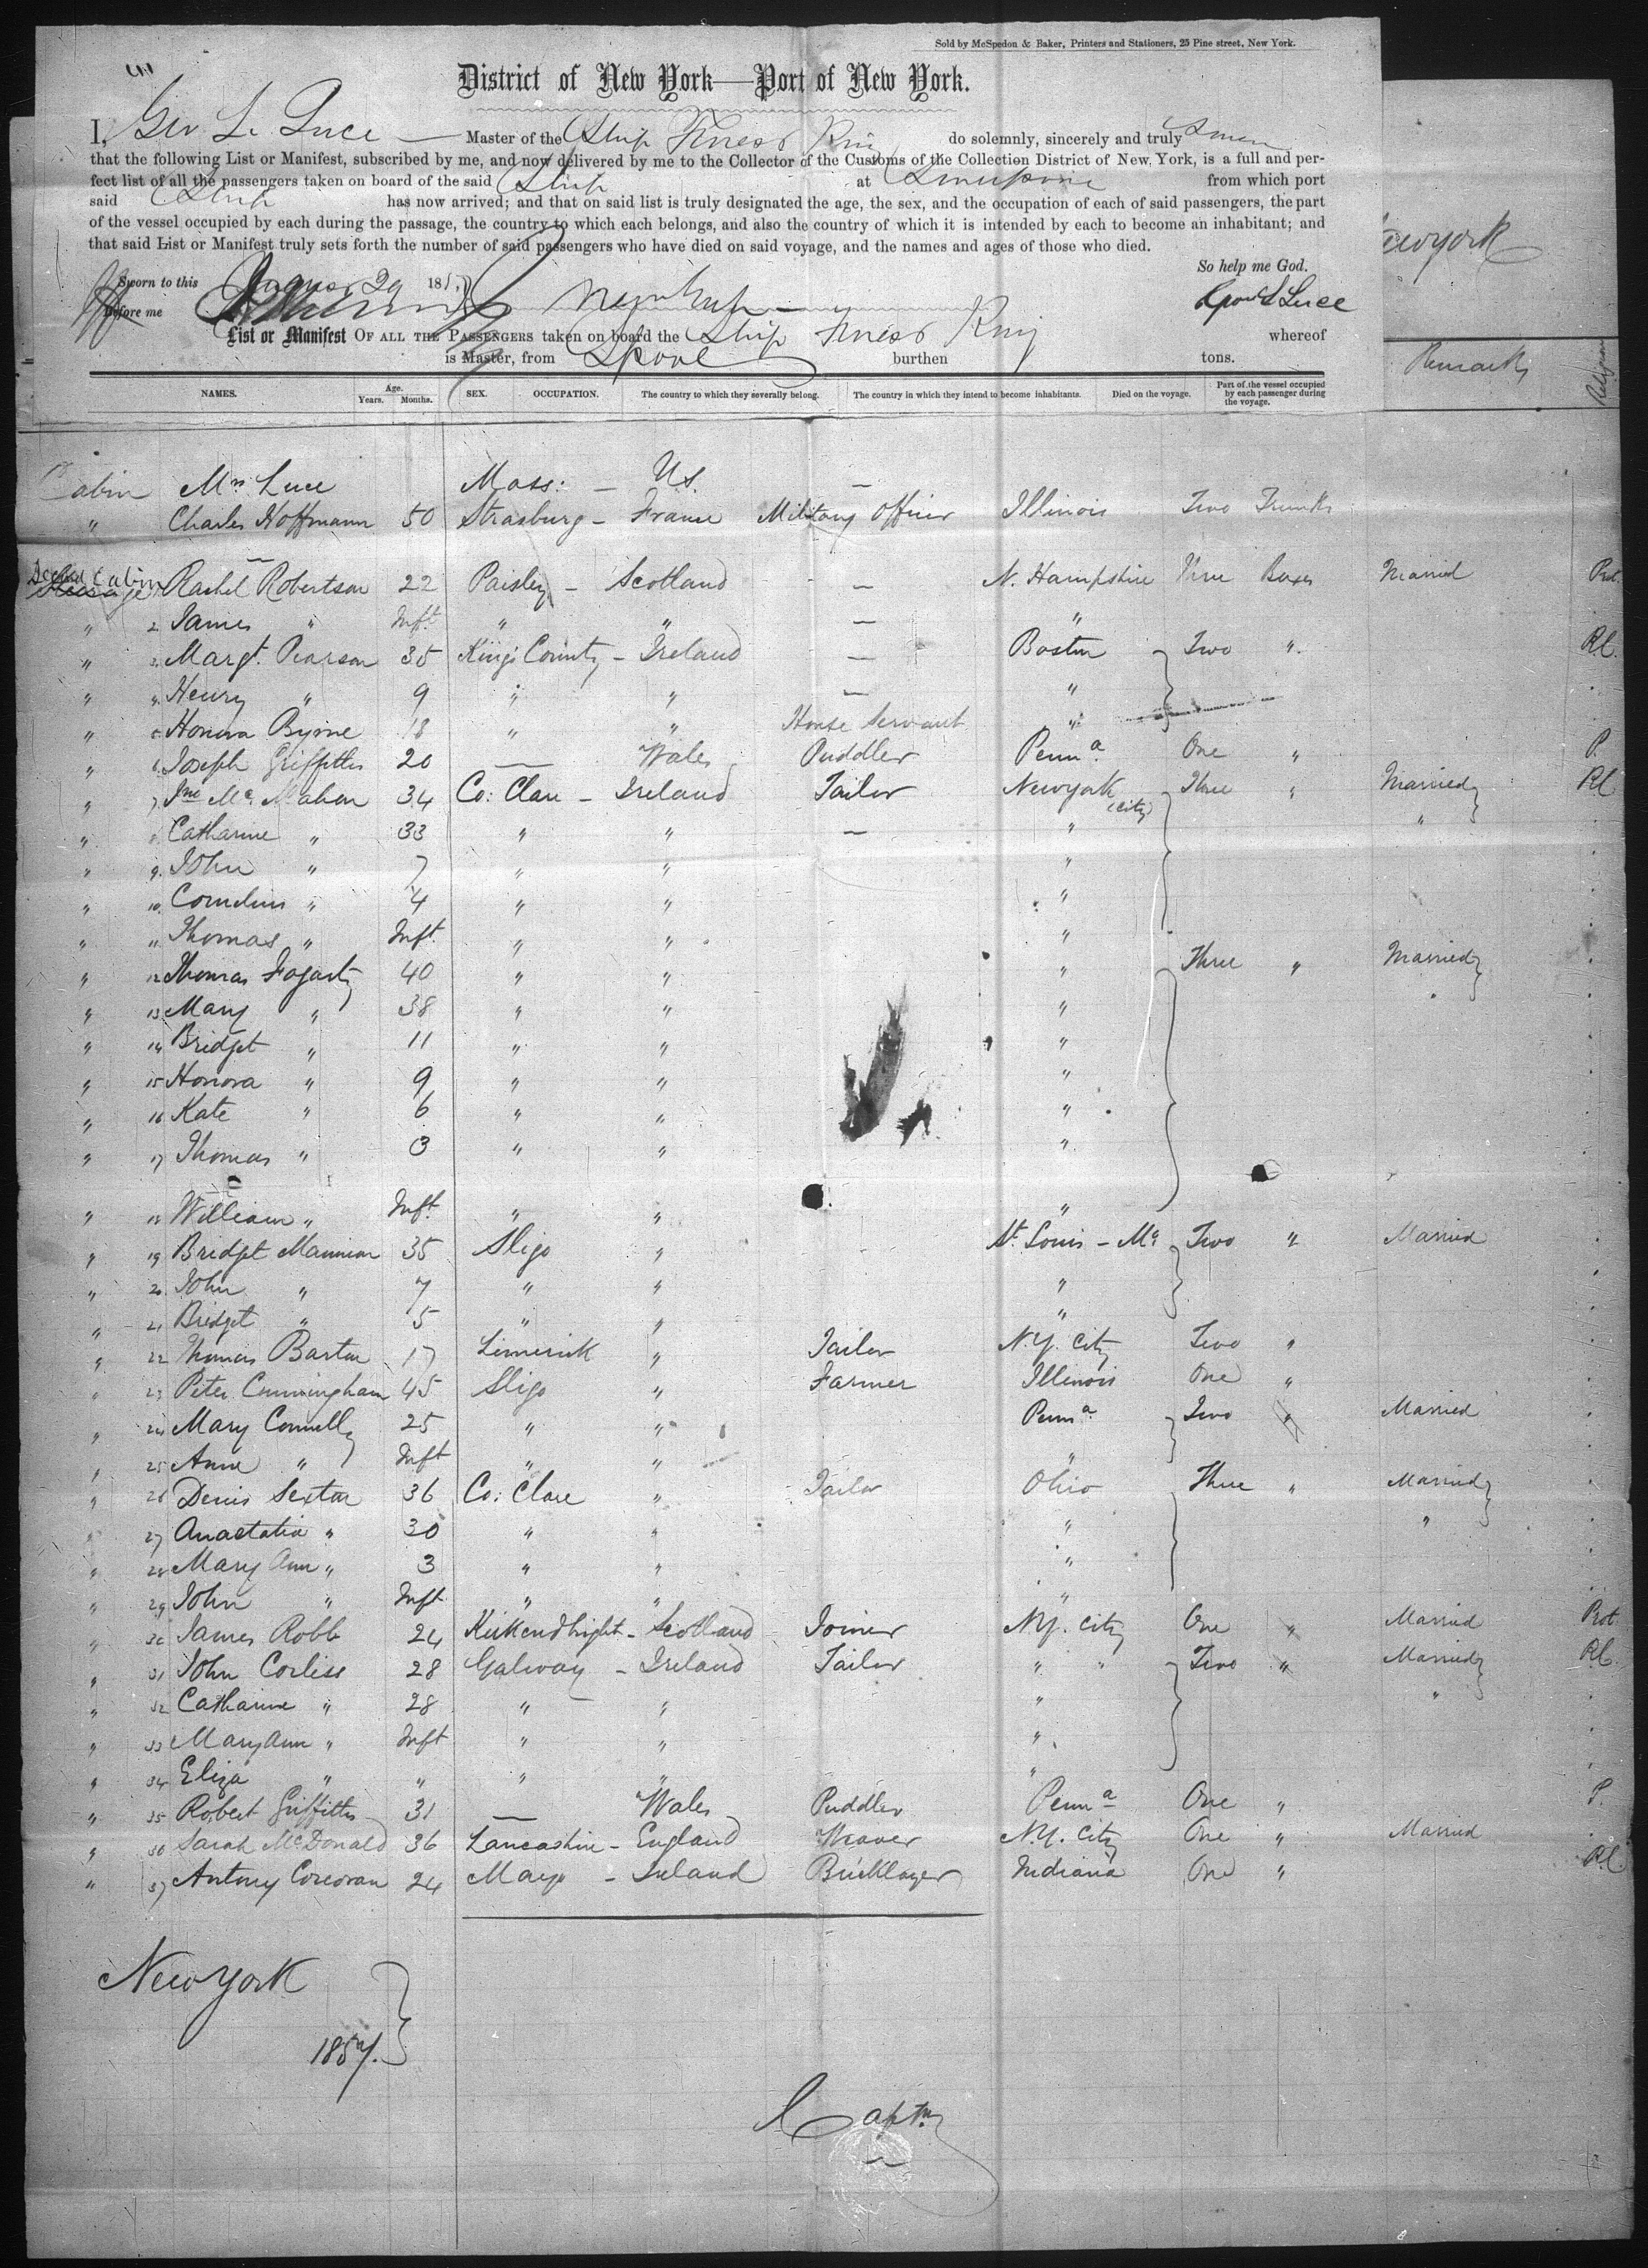 Sold by McSpedon & Baker, Printers and Stationers, 25 Pine street, New York.
District of New York—Port of New York.
I, Geo L. Luce Master of the Ship do solemnly, sincerely and truly
that the following List or Manifest, subscribed by me, and now delivered by me to the Collector of the Customs of the Collection District of New York, is a full and per-
fect list of all the passengers taken on board of the said Ship at from which port
said Ship has now arrived; and that on said list is truly designated the age, the sex, and the occupation of each of said passengers, the part
of the vessel occupied by each during the passage, the country to which each belongs, and also the country of which it is intended by each to become an inhabitant; and
that said List or Manifest truly sets forth the number of said passengers who have died on said voyage, and the names and ages of those who died.
Newyork
So help me God.
Sworn to this 29 185
Before me
Geo L Luce
List or Manifest OF ALL THE PASSENGERS taken on board the Ship whereof
is Master, from Lpool burthen tons.
Remarks Religion
NAMES. Age. Years. Months. SEX. OCCUPATION. The country to which they severally belong. The country in which they intend to become inhabitants. Died on the voyage. Part of the vessel occupied by each passenger during the voyage.
Cabin Mrs Luce Mass: — U.S. —
" Charles Hoffmann 50 Strasburg - France Military Officer Illinois Two Trunks
Second Cabin Rachel Robertson 22 Paisley - Scotland — N. Hampshire Three Boxes Married Prot.
" 2 James " Inft " " — "
" 3 Margt. Pearson 35 Kings County - Ireland — Boston Two " R.C.
" 4 Henry " 9 " " — "
" 5 Honora Byrne 18 " " House Servant "
" 6 Joseph Griffiths 20 — Wales Puddler Penna. One " P.
" 7 Jno McMahon 34 Co: Clare - Ireland Tailor Newyork (City) Three " Married RC
" 8 Catharine " 33 " " — " "
" 9 John " 7 " " "
" 10 Cornelius " 4 " " "
" 11 Thomas " Inft. " " "
" 12 Thomas Fogarty 40 " " " Three " Married
" 13 Mary " 38 " " " "
" 14 Bridget " 11 " " "
" 15 Honora " 9 " " "
" 16 Kate " 6 " " "
" 17 Thomas " 3 " " "
" 18 William " Inft. " " "
" 19 Bridget Mannion 35 Sligo " St. Louis - Mo Two " Married
" 20 John " 7 " " "
" 21 Bridget " 5 " " "
" 22 Thomas Barton 17 Limerick " Tailor N.Y. City Two "
" 23 Peter Cunningham 45 Sligo " Farmer Illinois One "
" 24 Mary Connelly 25 " " Penna. Two " Married
" 25 Anne " Inft " " "
" 26 Denis Sexton 36 Co: Clare " Tailor Ohio Three " Married
" 27 Anastatia " 30 " " " "
" 28 Mary Ann " 3 " " "
" 29 John " Inft " " "
" 30 James Robb 24 Kirkcudbright - Scotland Joiner N.Y. City One " Married Prot.
" 31 John Corliss 28 Galway - Ireland Tailor " " Two " Married R.C.
" 32 Catharine " 28 " " " "
" 33 Mary Ann " Inft " " "
" 34 Eliza " " " " "
" 35 Robert Griffiths 31 — Wales Puddler Penna One " P.
" 36 Sarah McDonald 36 Lancashire - England Weaver N.Y. City One " Married
" 37 Antony Corcoran 24 Mayo - Ireland Bricklayer Indiana One " R.C
New York
1857.
Captn